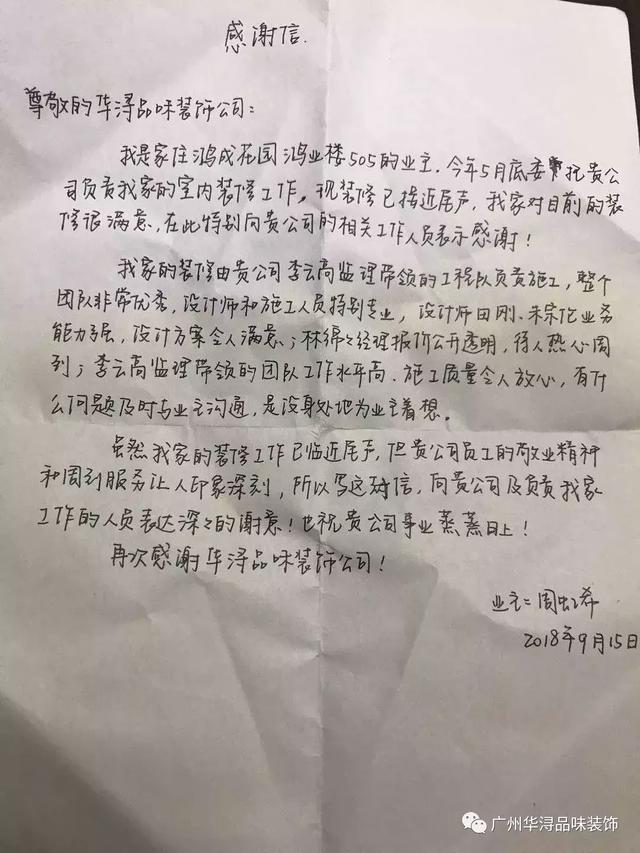 感谢信.
尊敬的华浔品味装饰公司：
我是家住鸿成花园鸿业楼505的业主.今年5月底委托贵公
司负责我家的室内装修工作。现装修已接近尾声,我家对目前的装
修很满意,在此特别向贵公司的相关工作人员表示感谢！
我家的装修由贵公司李云高监理带领的工程队负责施工，整个
团队非常优秀,设计师和施工人员特别专业，设计师田刚、朱宗佗业务
能力强,设计方案令人满意；林绵々经理报价公开透明，待人热心周
到；李云高监理带领的团队工作水平高、施工质量令人放心，有什
么问题及时与业主沟通，是设身处地为业主着想。
虽然我家的装修工作已临近尾声,但贵公司员工的敬业精神
和周到服务让人印象深刻，所以写这封信，向贵公司及负责我家
工作的人员表达深々的谢意！也祝贵公司事业蒸蒸日上！
再次感谢华浔品味装饰公司！
业主：周虹希
2018年9月15日
广州华浔品味装饰